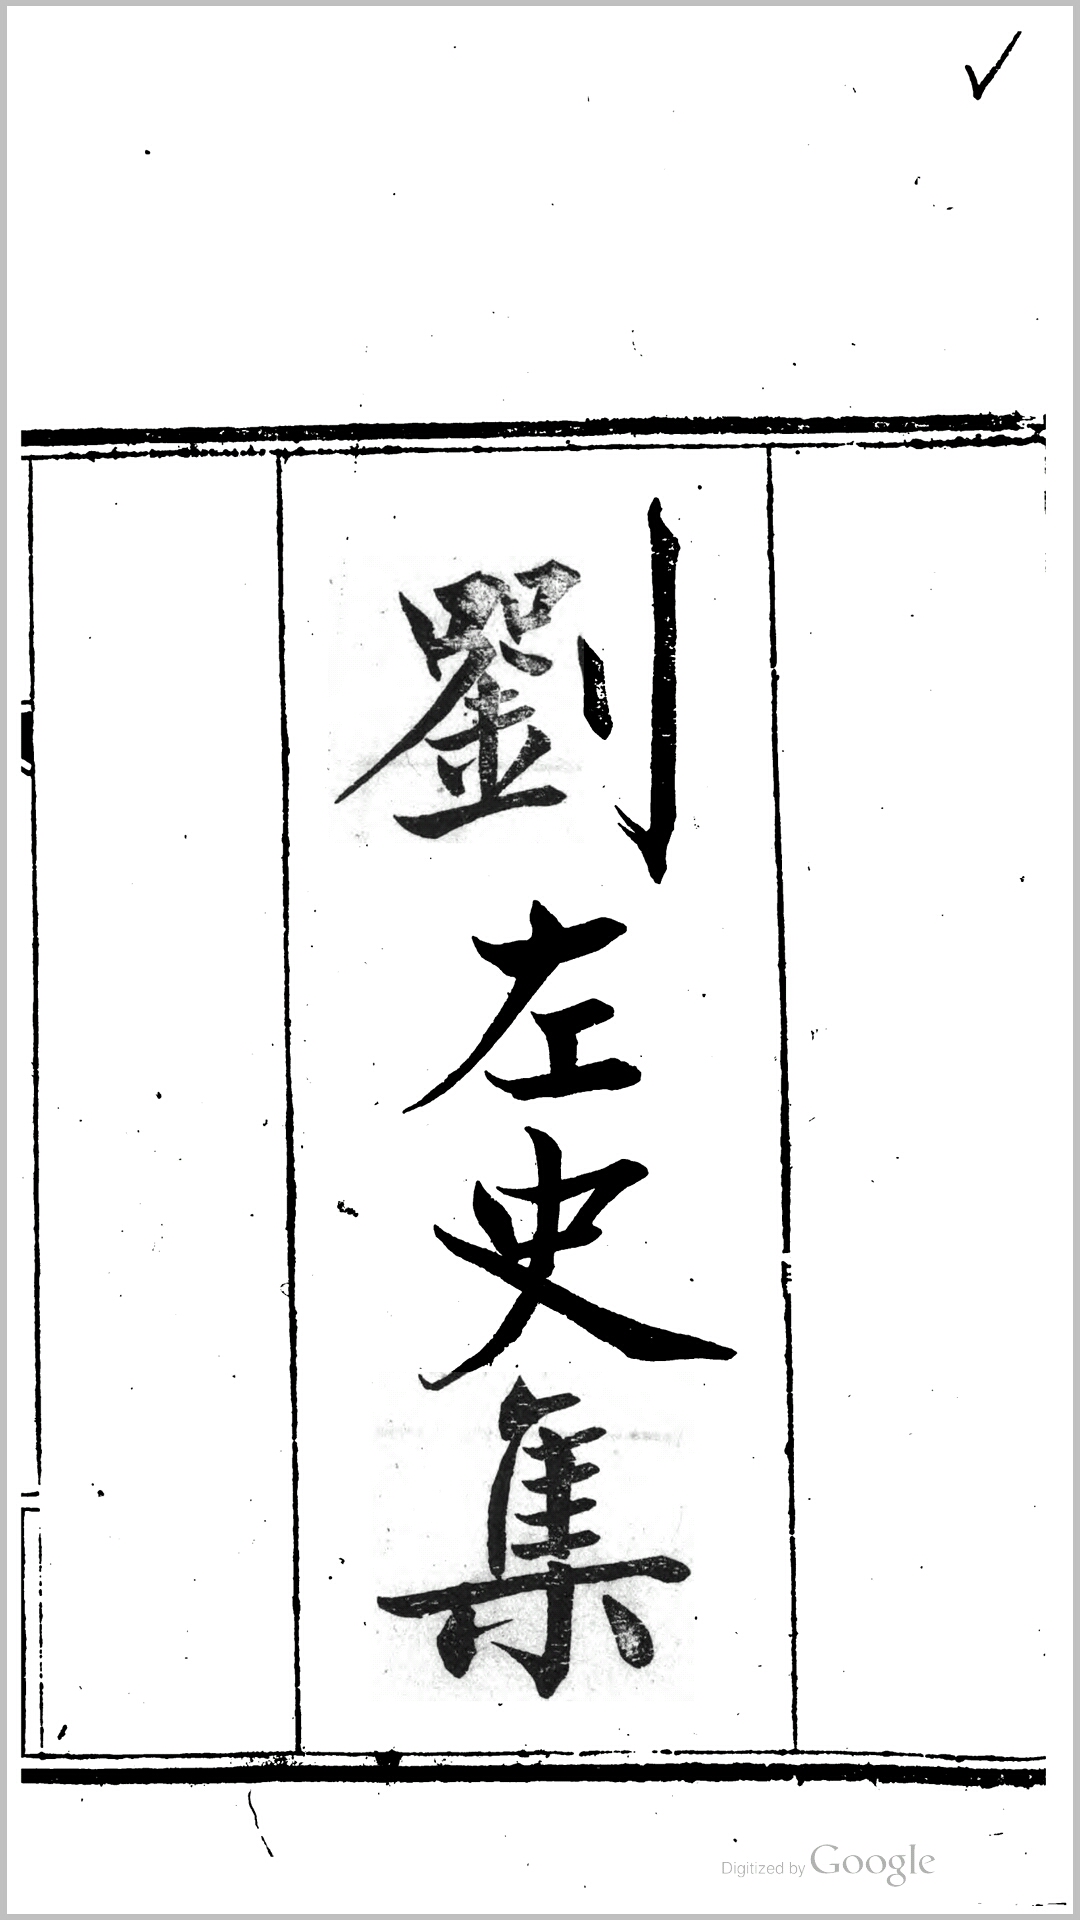 劉左史集
Digitized by Google